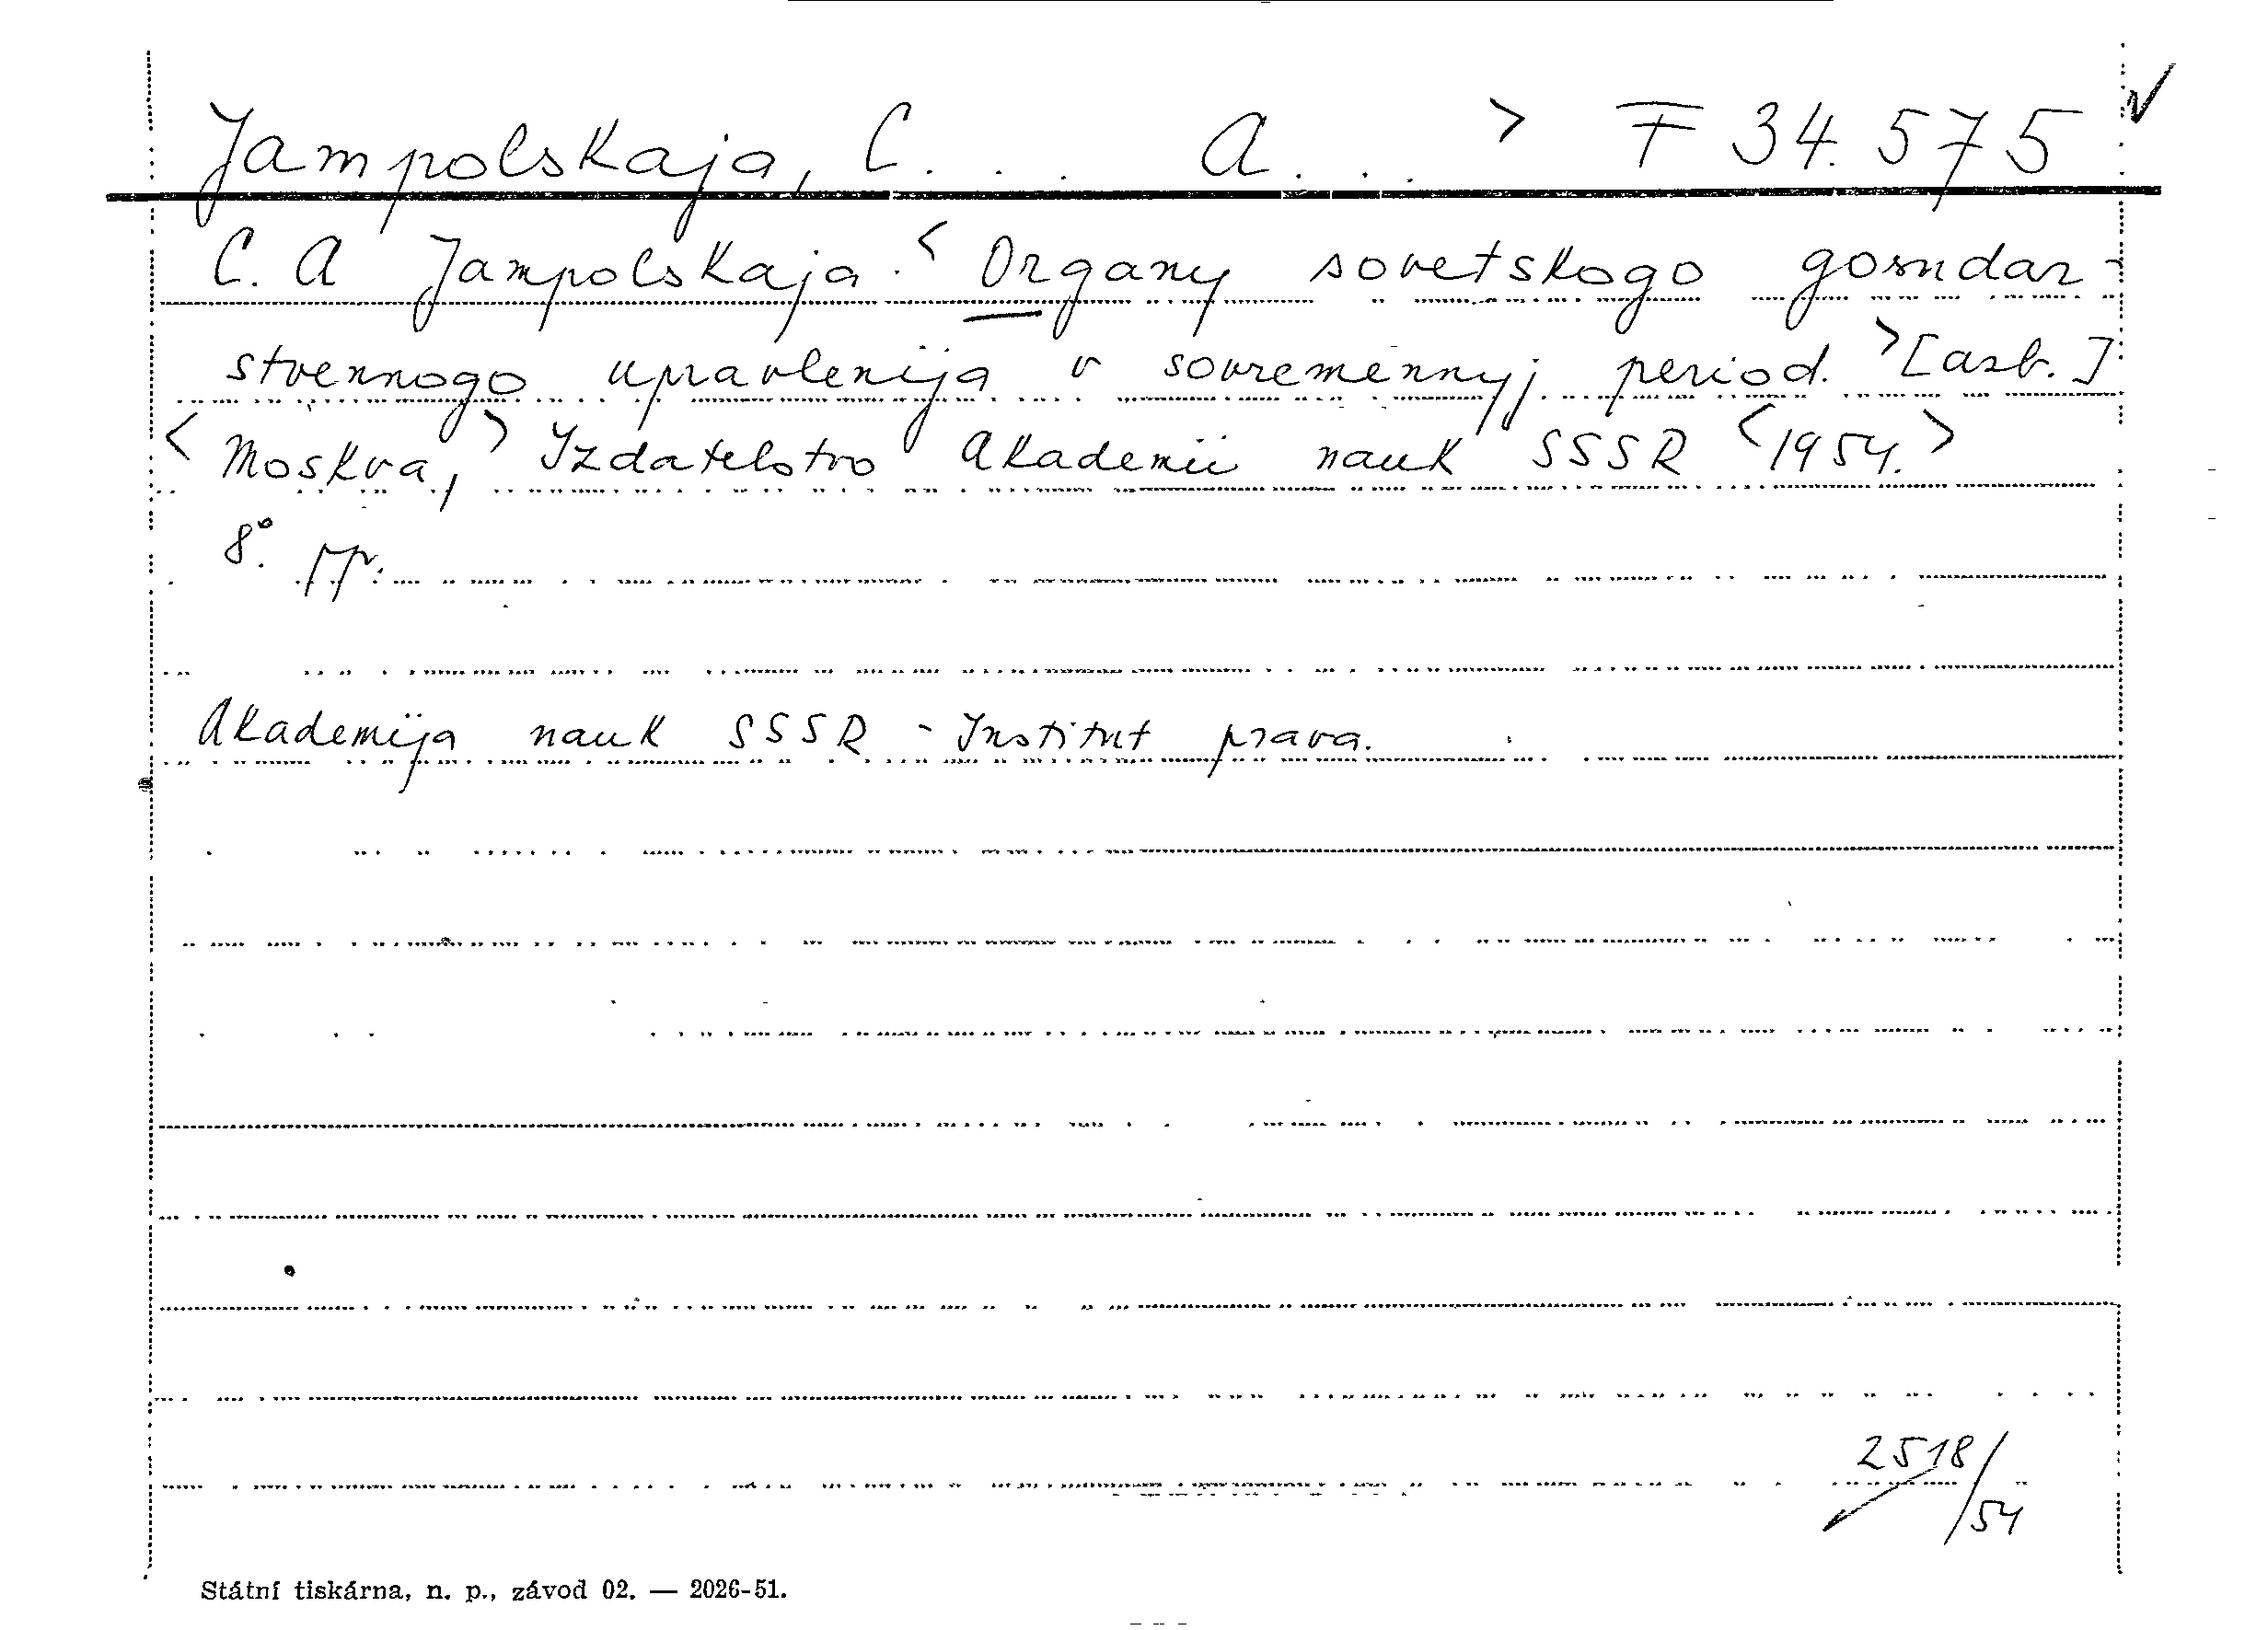 Jampolskaja, C. . . A. . . > F 34.575
C. A Jampolskaja. < Organy sovetskogo gosudar-
stvennogo upravlenija v sovremennyj period. > [azb.]
< Moskva, > Izdatelstvo Akademii nauk SSSR < 1954. >
8°. pp.
Akademija nauk SSSR - Institut prava.
2518/54
Státní tiskárna, n. p., závod 02. — 2026-51.